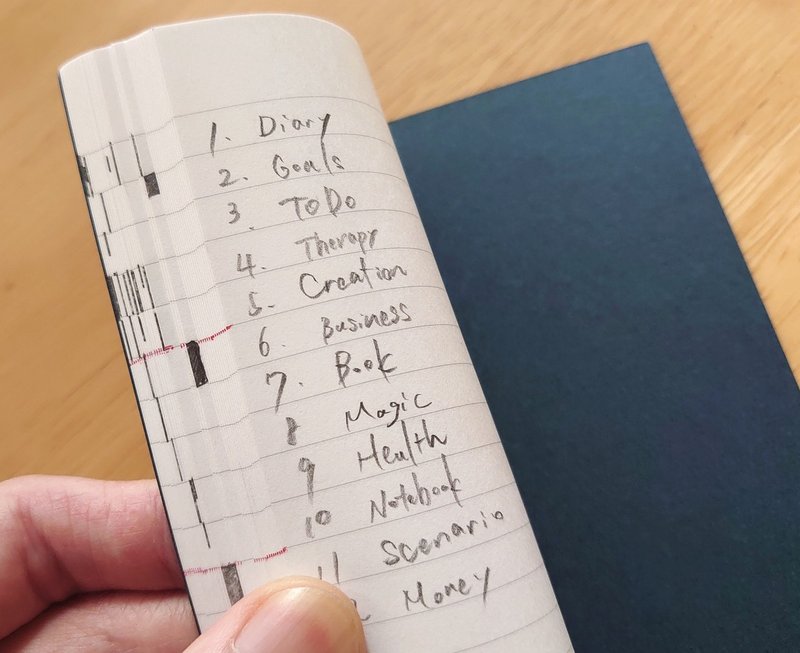 1. Diary
2. Goals
3. ToDo
4. Therapy
5. Creation
6. Business
7. Book
8 Magic
9 Health
10 Notebook
11 Scenario
2 Money